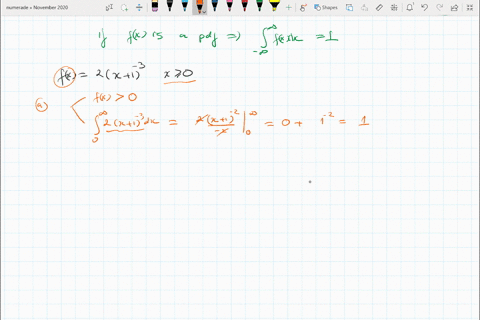 numerade » November 2020
Shapes
if f(x) is a pdf ⇒ ∫_{-∞}^{∞} f(x)dx = 1
f(x) = 2(x+1)^{-3} x ≥ 0
a) f(x) > 0
∫_0^∞ 2(x+1)^{-3} dx = 2(x+1)^{-2}/-2 |_0^∞ = 0 + 1^{-2} = 1